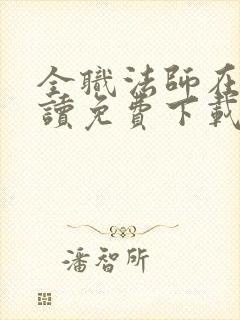 全職法師在
讀免費下載
潘智所